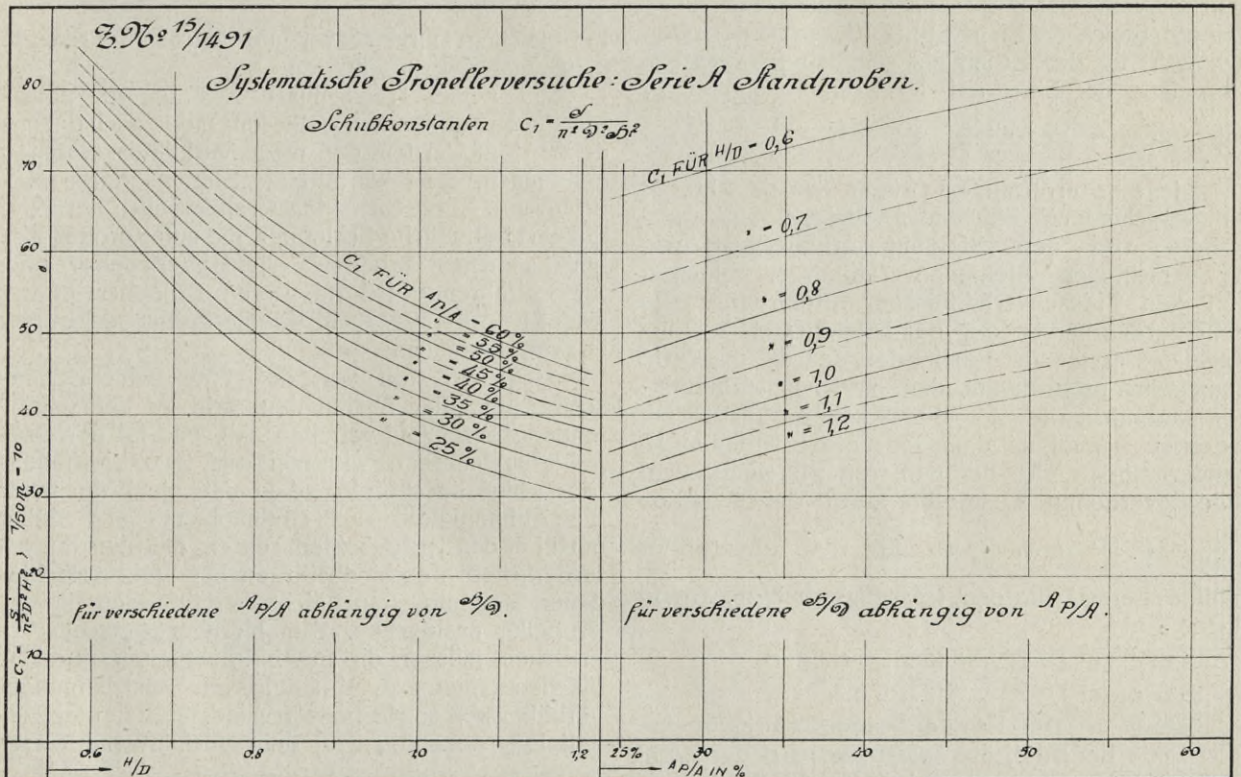 Z. Nº 15/1491
Systematische Propellerversuche: Serie A Standproben.
Schubkonstanten C₁ = S / n² D² H²
80
70
60
50
40
30
20
10
C₁ = S / n² D² H² ; 1/50 m = 10
C₁ FÜR AP/A = 60 %
" = 55 %
" = 50 %
" = 45 %
" = 40 %
" = 35 %
" = 30 %
" = 25 %
C₁ FÜR H/D = 0,6
" = 0,7
" = 0,8
" = 0,9
" = 1,0
" = 1,1
" = 1,2
für verschiedene AP/A abhängig von H/D.
für verschiedene H/D abhängig von AP/A.
0.6 0.8 1.0 1,2 25% 30 40 50 60
H/D
AP/A IN %